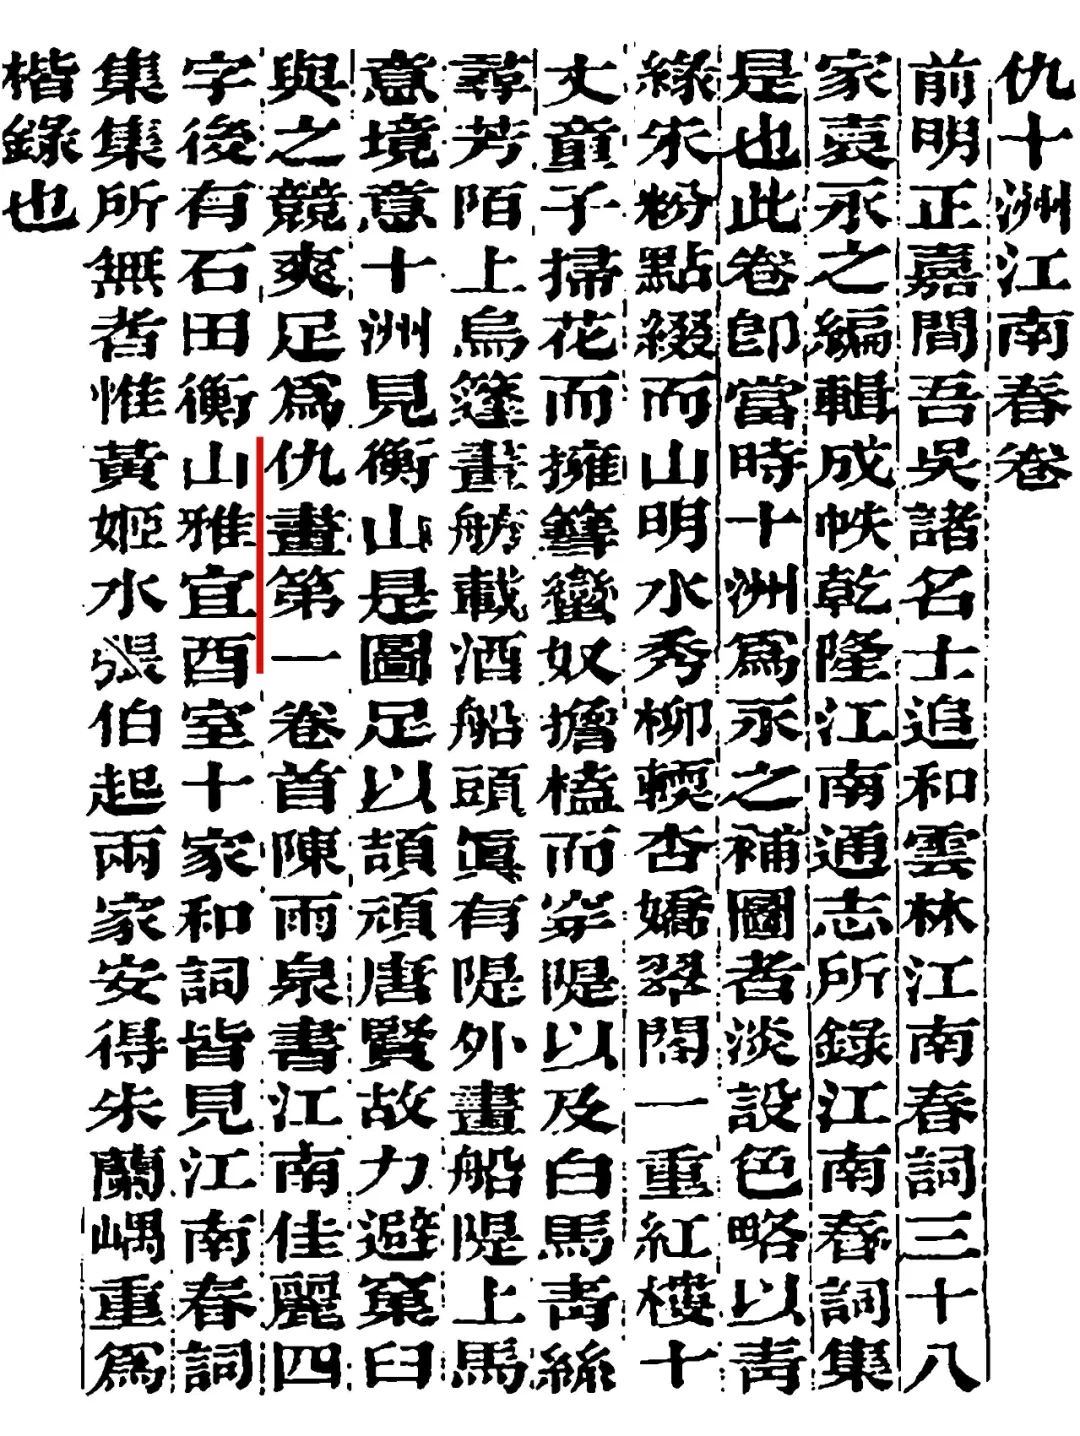 仇十洲江南春卷
前明正嘉間吾吳諸名士追和雲林江南春詞三十八
家袁永之編輯成帙乾隆江南通志所錄江南春詞集
是也此卷卽當時十洲爲永之補圖者淡設色略以靑
綠朱粉點綴而山明水秀柳輭杏嬌翠閣一重紅樓十
丈童子掃花而擁篲蠻奴擔榼而穿隄以及白馬靑絲
尋芳陌上烏篷畫舫載酒船頭眞有隄外畫船隄上馬
意境意十洲見衡山是圖足以頡頏唐賢故力避窠臼
與之競爽足爲仇畫第一卷首陳雨泉書江南佳麗四
字後有石田衡山雅宜酉室十家和詞皆見江南春詞
集集所無者惟黃姬水張伯起兩家安得朱蘭嵎重爲
楷錄也